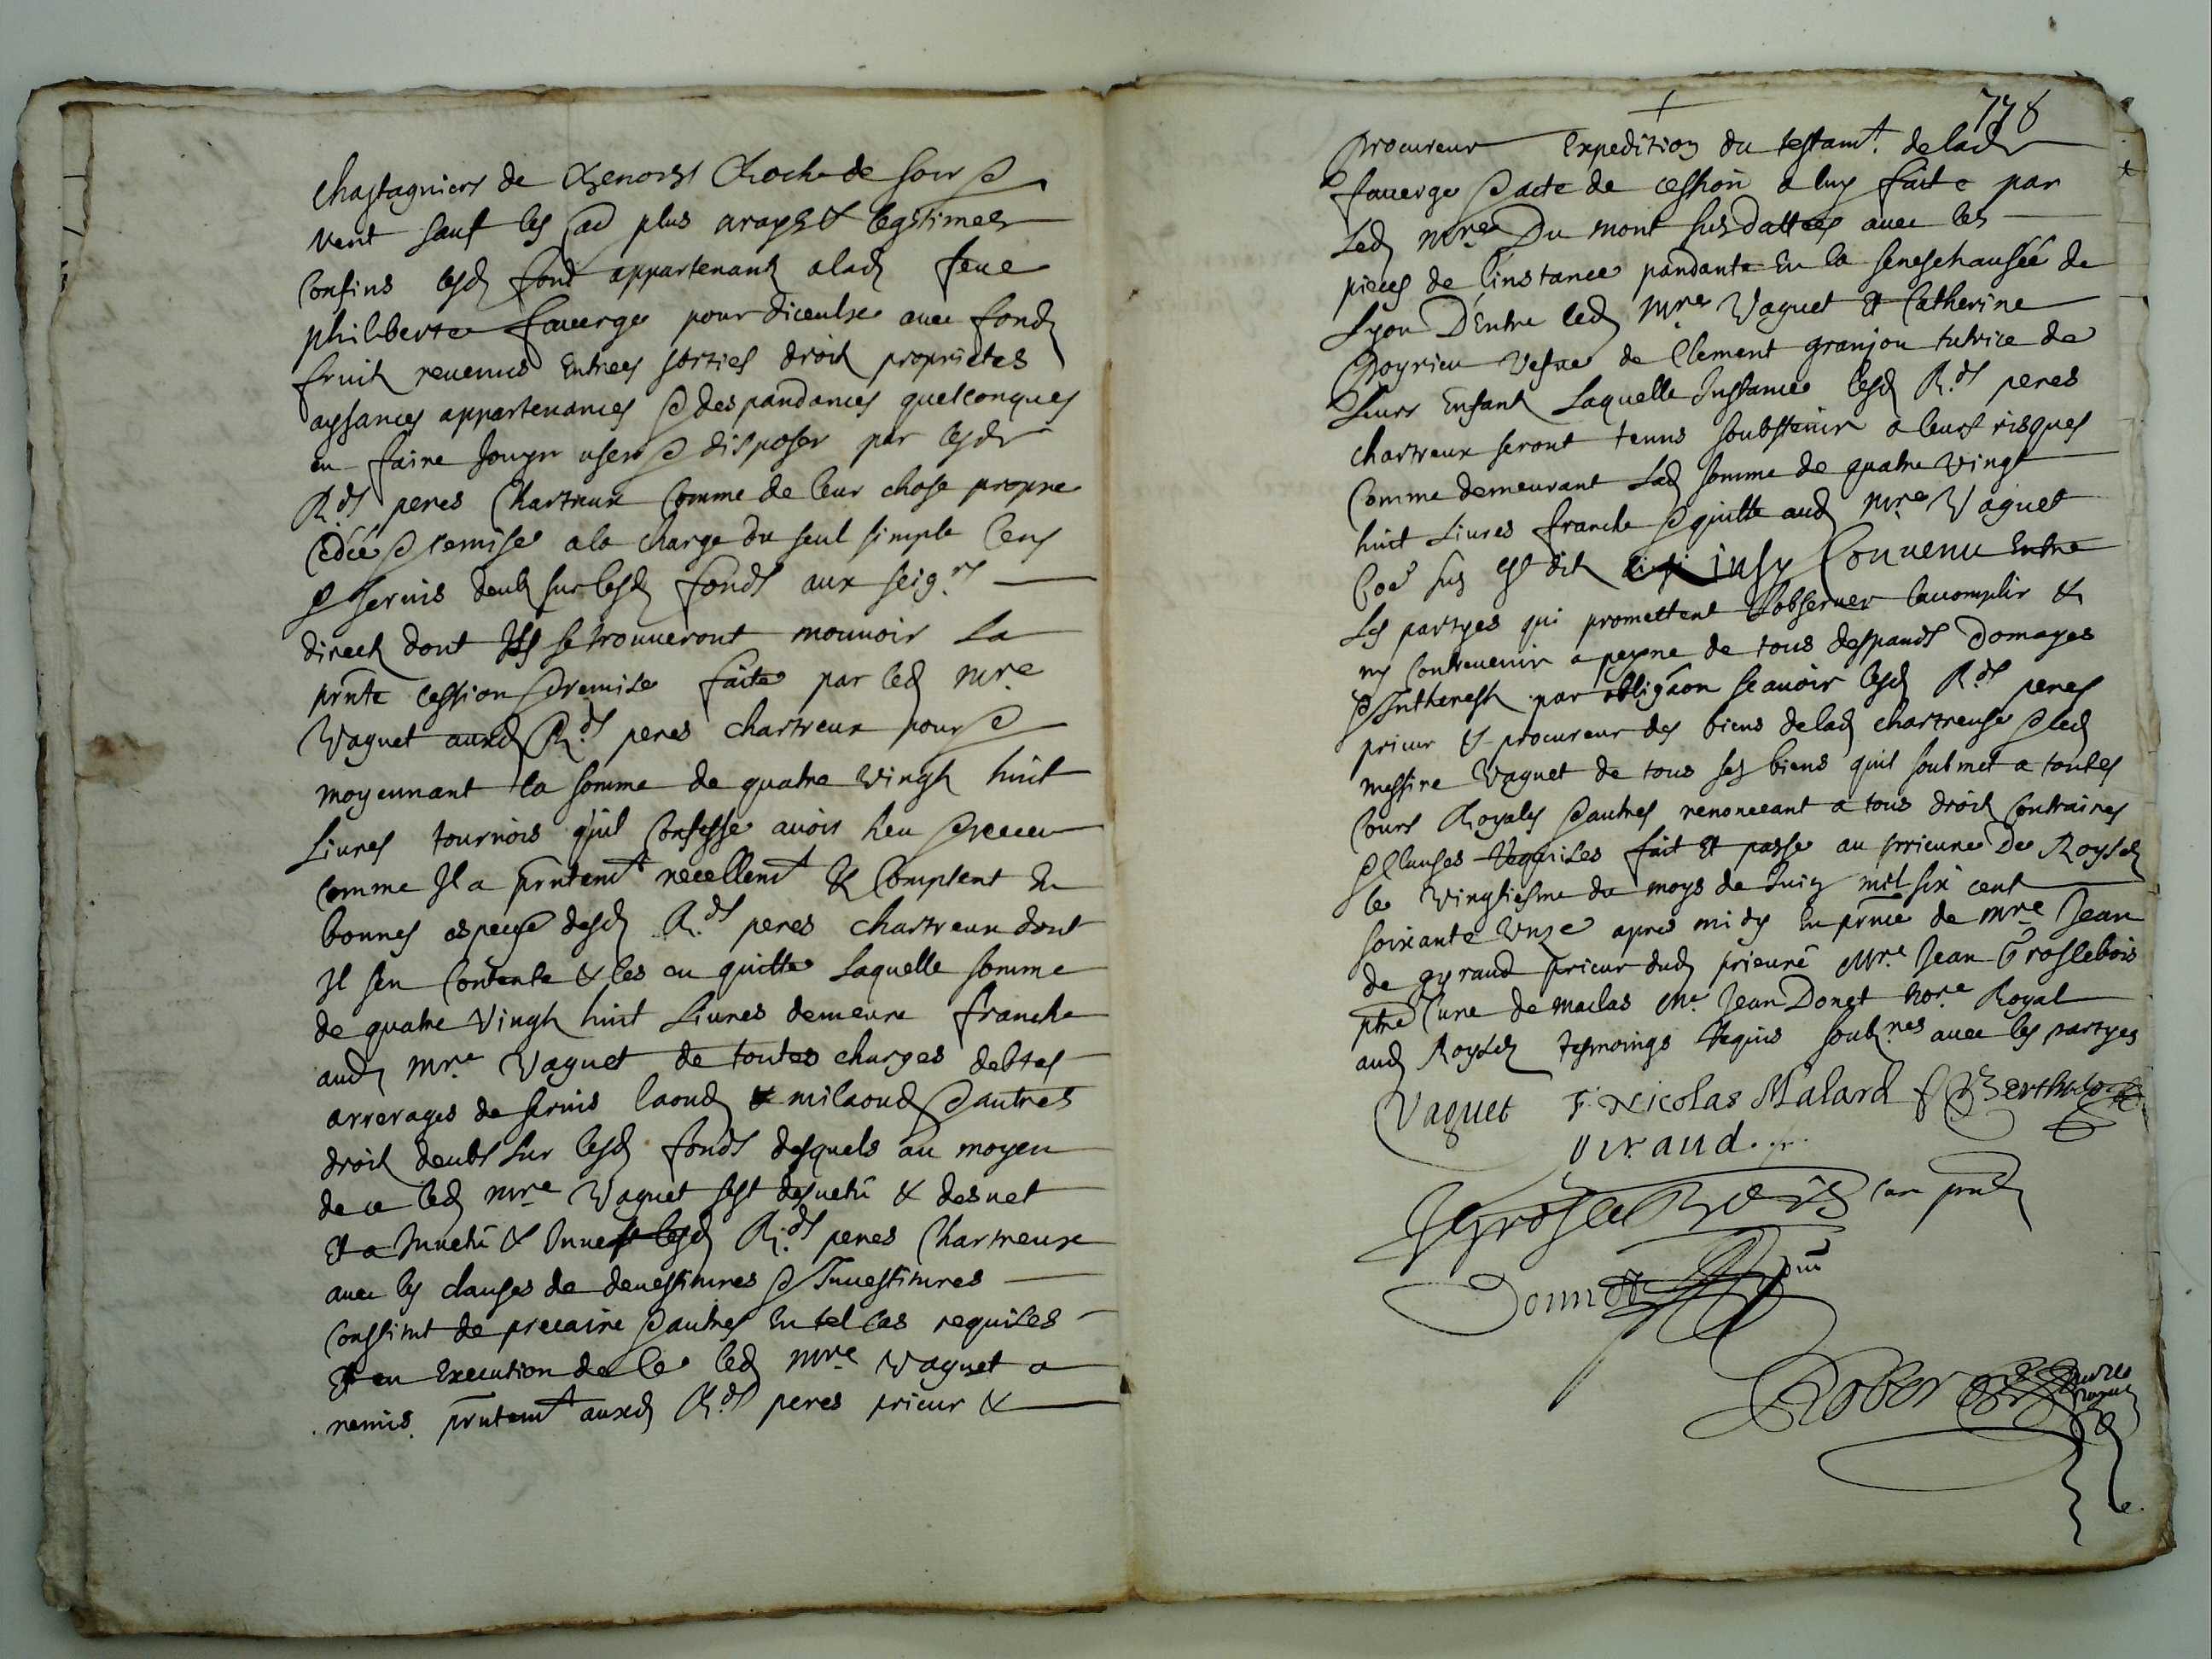 chastagniers de Benoist Roche de soir &
vent sauf les ad plus vrays & legitimes
confins lesd fond appartenantz a lad feue
philiberte fauerge pour diceulx auec fondz
fruitz reuenus Entrees sorties droitz proprietes
aysances appartenances & despandances quelconques
en faire Jouyr user & disposer par lesdr
R.ds peres Chartreux Comme de leur chose propre
Cedée & remise a la charge du seul simple Cens
& seruis deubz sur lesd fonds aux seig.rs
directz dont Ils se trouueront mouuoir La
prnte cession & remise faite par led mre
Vaguet auxd R.ds peres chartreux pour &
moyennant la somme de quatre vingtz huit
Liures tournois quil Confesse auoir heu & receu
Comme Il a prntemt reellemt & Comptent En
bonnes espece desd R.ds peres chartreux dont
Il sen Contente & les en quitte Laquelle somme
de quatre Vingtz huit Liures demeure franche
aud mre Vaguet de toutes charges debtes
arrerages de seruis laoudz & milaoudz & autres
droitz deubs sur lesd fonds desquels au moyen
de ce led mre Vaguet sest desuetu & desuet
Et a Inuetu & Inuest lesd R.ds peres Chartreux
auec les clauses de deuestitures & Inuestitures
Constitut de precaire & autres En tel Cas requises
Et en Execution de Ce led mre Vaguet a
remis prntemt auxd R.ds peres prieur &
778
procureur Expedition du testamt. de lad
fauerge & acte de cession a luy faite par
Led mre Du mont sus dattées auec les
pieces de linstance pandante En la seneschausée de
Lyon D'Entre led mre Vaguet Et Catherine
Poyrieu Vefue de Clement granjon tutrice de
Leurs Enfantz Laquelle Instance lesd R.ds peres
chartreux seront tenus soubstenir a leurs risques
Comme demeurant Lad somme de quatre Vingtz
huit Liures franche & quitte aud mre Vaguet
Coe sus est dit insy Conuenu Entre
Les partyes qui promettent L'obseruer laccomplir &
ny Contreuenir a peyne de tous despands Domages
& Intherestz par obligaon scauoir lesd R.ds peres
prieur & procureur des biens de lad chartreuse & led
messire Vaguet de tous ses biens quil soubmet a toutes
Cours Royales & autres renonceant a tous droitz Contraires
& Clauses Requises fait Et passe au prieuré De Roysez
le vingtiesme du moys de Juin mil six cent
soixante Unze apres midy En prnce de mre Jean
de gyraud prieur dud prieuré Mre Jean Groslebois
ptre Cure de maclas Me Jean Donet nore Royal
aud Roysez tesmoings Requis soubz.nes auec les partyes
Vaguet F. Nicolas Malard f Berthelo
Giraud. pr.
J Groslebois Cure pnt
Donnet pnt
Robert